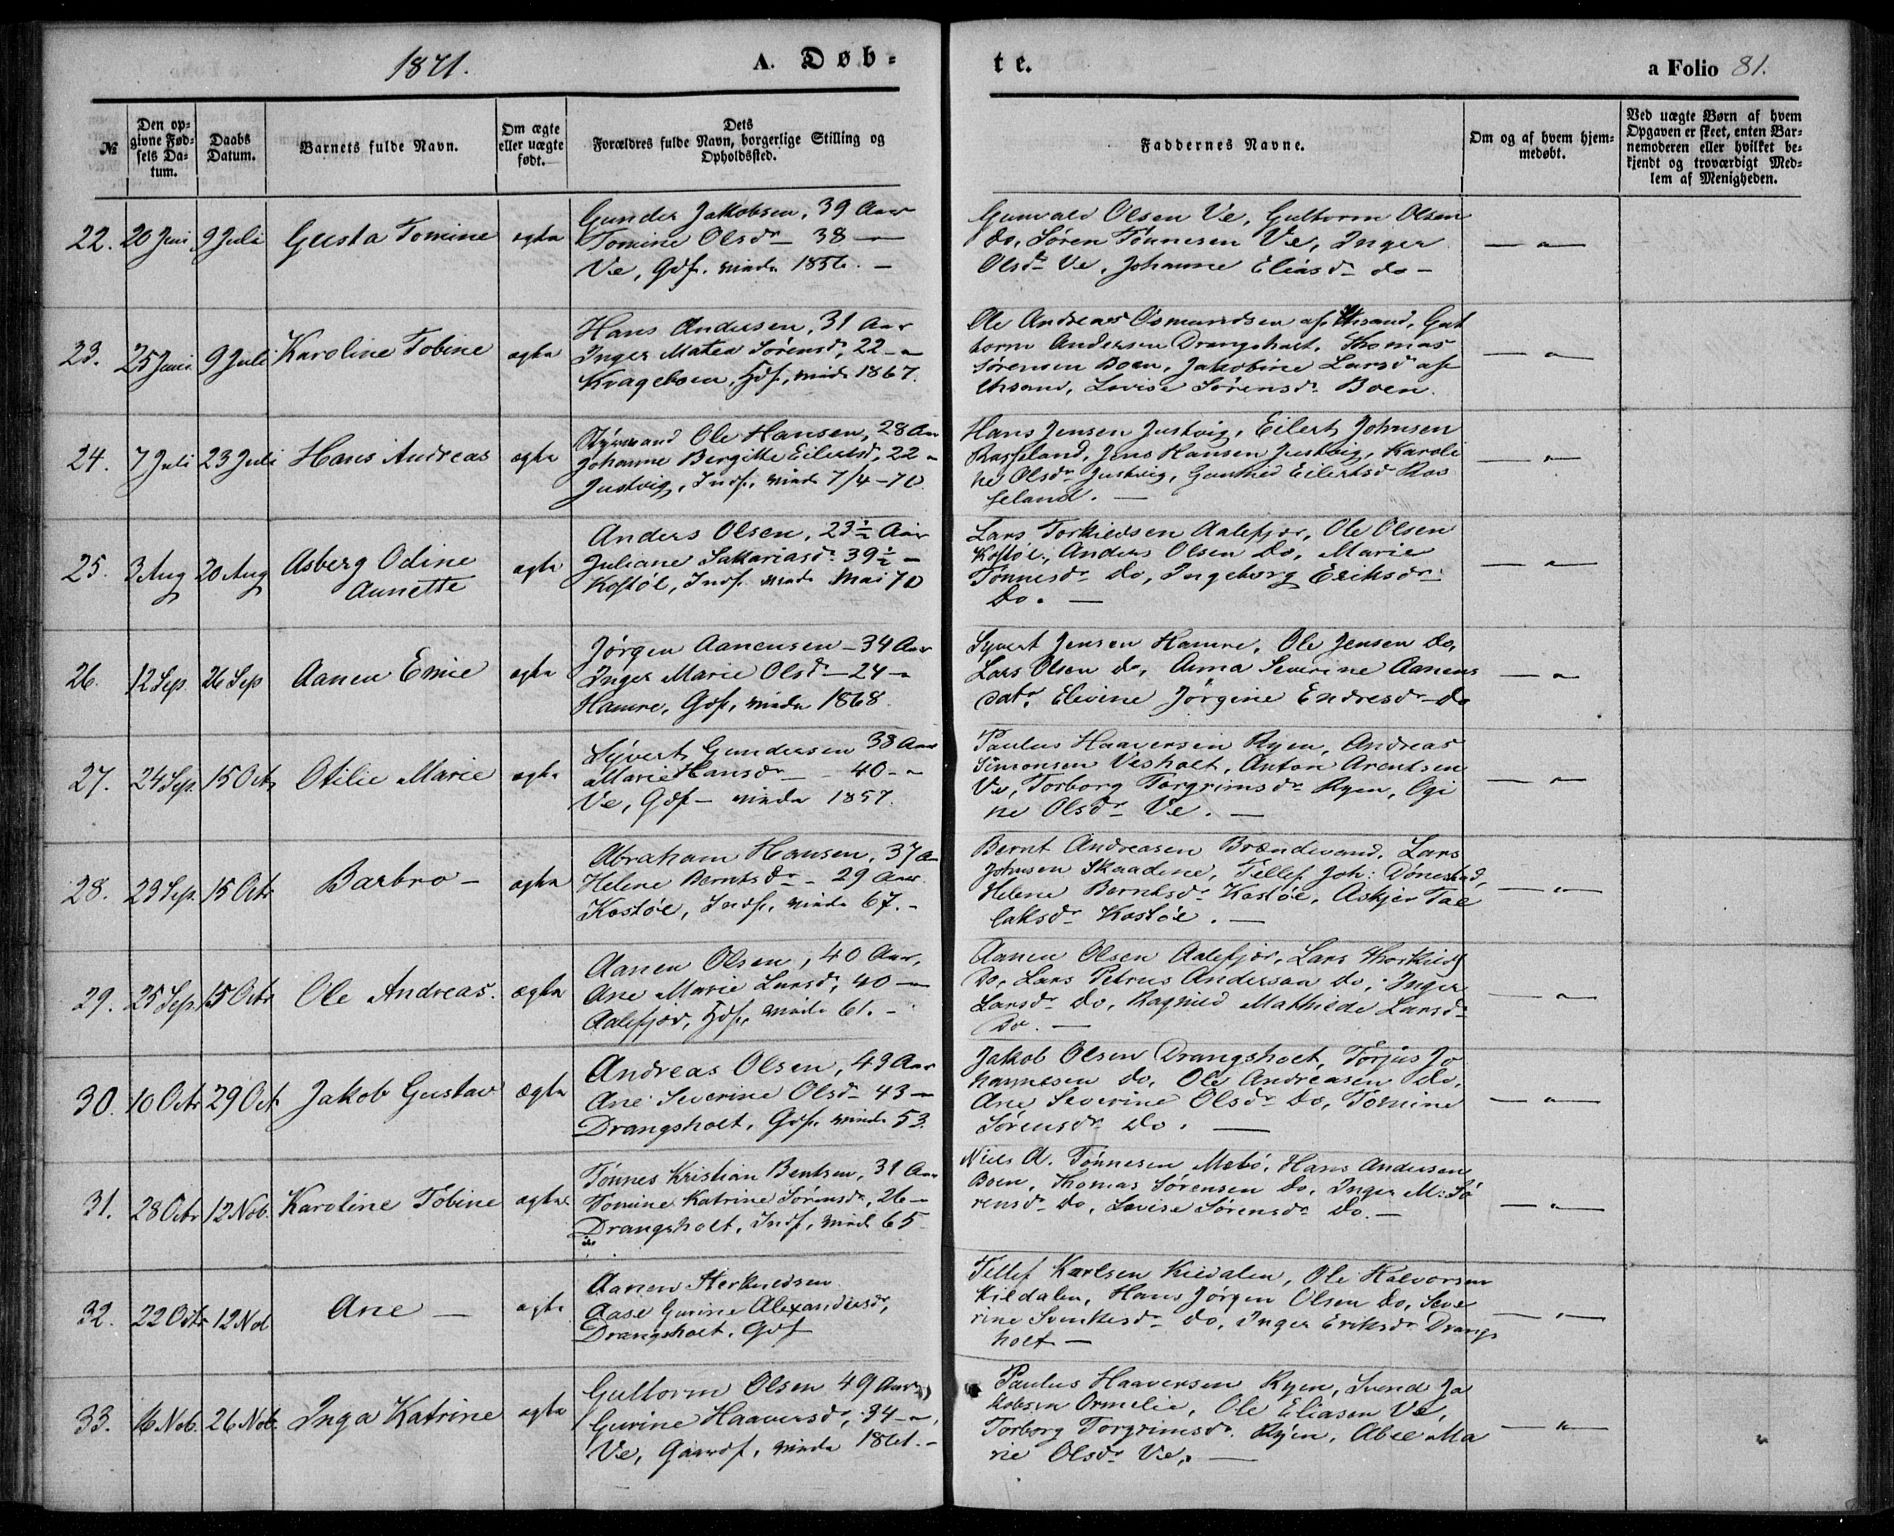 1871.
A. Døb-
te.
a Folio 81.
№
Den op-
givne Fød-
sels Da-
tum.
Daabs
Datum.
Barnets fulde Navn.
Om ægte
eller uægte
født.
Dets
Forældres fulde Navn, borgerlige Stilling og
Opholdssted.
Faddernes Navne.
Om og af hvem hjem-
medøbt.
Ved uægte Børn af hvem
Opgaven er skeet, enten Bar-
nemoderen eller hvilket be-
kjendt og troværdigt Med-
lem af Menigheden.
22. 20 Juni 9 Juli Gusta Tomine ægte
Gunder Jakobsen, 39 Aar
Tomine Olsdr 38 —
Ve, Gdf. viede 1856. —
Gunvald Olsen Ve, Guttorm Olsen
Do, Søren Tønnesen Ve, Inger
Olsdr Ve, Johanne Eliasdr do —
— " —
23. 25 Juni 9 Juli Karoline Tobine ægte
Hans Andersen, 31 Aar
Inger Matea Sørensd, 22 — "
Kvageboen, Hdf, viede 1867.
Ole Andreas Osmundsen af Chsand, Gut
torm Andersen Drangsholt, Thomas
Sørensen Boen, Jakobine Larsd af
Chsand, Lovise Sørensdr Boen.
— " —
24. 7 Juli 23 Juli Hans Andreas ægte
Styrmand Ole Hansen, 28 Aar
Johanne Bergitte Eilertsd, 22 "
Justvig, Indf, viede 7/4 - 70
Hans Jensen Justvig, Eilert Johnsen
Rosseland, Jens Hansen Justvig, Karoli
ne Olsdr Justvig, Gunhild Eilertsd Ros
seland. —
— " —
25. 3 Aug 20 Aug Asberg Odine
Annette ægte
Anders Olsen, 23 ½ Aar
Juliane Sakariasdr 39 ½ —
Kostøl, Indf. viede Mai 70
Lars Torkildsen Aalefjær, Ole Olsen
Kostøl, Anders Olsen Do, Marie
Tønnesdr Do, Ingeborg Eriksdr
Do. —
— " —
26. 12 Sep 26 Sep Aanen Emil ægte
Jørgen Aanensen — 34 Aar
Inger Marie Olsdr — 24 — "
Hamre, Gdf, viede 1868.
Syvert Jensen Hamre, Ole Jensen Do,
Lars Olsen do, Anna Severine Aanens
datr, Elevine Jørgine Endresdr Do
— " —
27. 24 Sep. 15 Octr Otilie Marie ægte
Syvert Gundersen 38 Aar
Marie Hansdr — 40 — "
Ve, Gdf — viede 1857.
Paulus Haaversen Ryen, Andreas
Simonsen Vesholt, Anton Arentsen
Ve, Torborg Torgrimsdr Ryen, Ogi
ne Olsdr Ve. —
— " —
28. 23 Sep. 15 Octr Barbro — ægte
Abraham Hansen, 37 A
Helene Berntsdr — 29 Aar
Kostøl, Indf, viede 67. —
Bernt Andreasen Brændevand, Lars
Johnsen Skaadene, Tellef Joh: Dønestad,
Helene Berntsdr Kostøl, Askjer Tal
laksdr Kostøl. —
— " —
29. 25 Sep. 15 Octr Ole Andreas. ægte
Aanen Olsen, 40 Aar,
Ane Marie Larsd, 40 —
Aalefjær, Hdf, viede 61. —
Aanen Olsen Aalefjær, Lars Thorkilds
Do, Lars Petrus Anderssen Do, Inger
Larsdr Do, Ragnild Mathilde Larsdr
Do. —
— " —
30. 10 Octr 29 Oct Jakob Gustav ægte
Andreas Olsen, 43 Aar
Ane Severine Olsdr 43 —
Drangsholt, Gdf, viede 53.
Jakob Olsen Drangsholt, Torjus Jo
hannesen Do, Ole Andreasen do,
Ane Severine Olsdr Do, Tomine
Sørensdr Do. —
— " —
31. 28 Octr 12 Nob. Karoline Tobine ægte
Tønnes Kristian Bentsen, 31 Aar
Tomine Katrine Sørensd, 26 —
Drangsholt, Indf, viede 65
Niels A. Tønnesen Mebø, Hans Andersen
Boen, Thomas Sørensen Do, Inger M. Sø
rensdr Do, Lovise Sørensdr Do. —
— " —
32. 22 Octr 12 Nob Ane — ægte
Aanen Sterkildsen
Aase Gurine Alexandersdr,
Drangsholt, Gdf
Tellef Karlsen Kildalen, Ole Halvorsen
Kildalen, Hans Jørgen Olsen Do, Seve
rine Svenkesdr Do, Inger Eriksdr Drangs
holt —
— " —
33. Nob. 26 Nob. Inga Katrine ægte
Guttorm Olsen 49 Aar
Gurine Haaversdr, 34 — "
Ve, Gaardf, viede 1861. —
Paulus Haaversen Ryen, Svend Ja
kobsen Ormelid, Ole Eliasen Ve,
Torborg Torgrimsdr Ryen, Abel Ma
rie Olsdr Ve, —
— " —